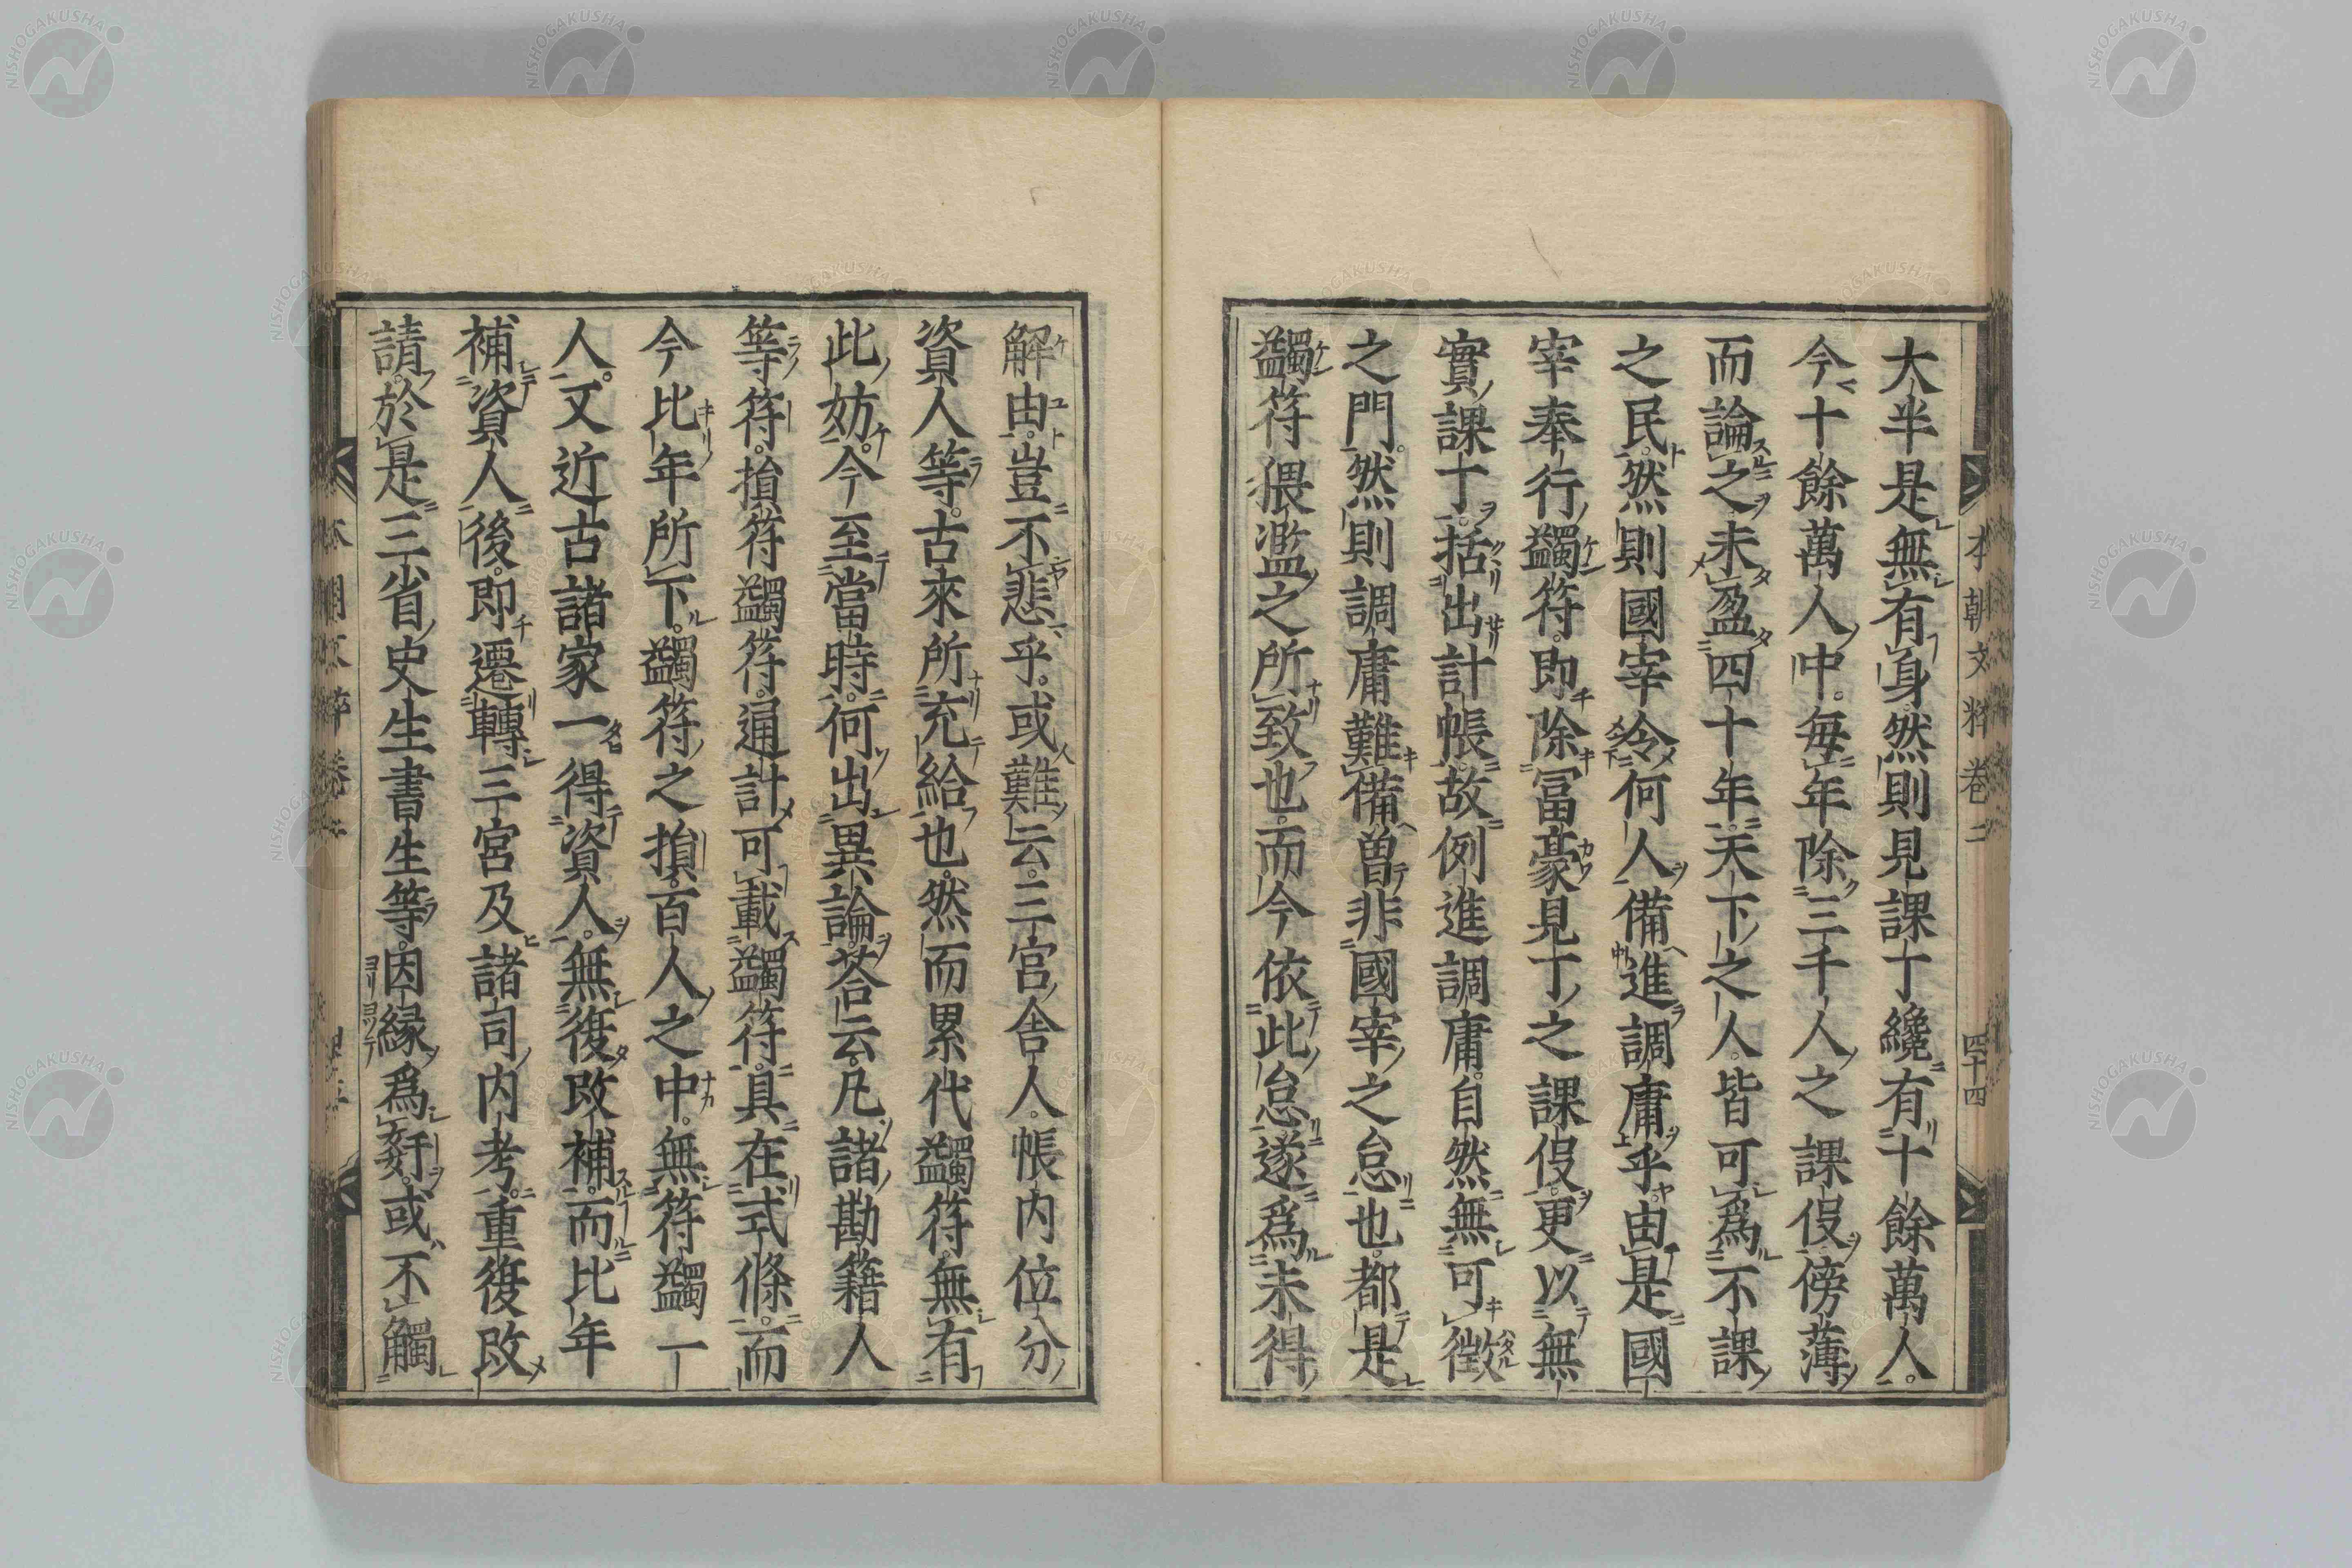 大半是無有身然則見課丁纔有十餘萬人。
今十餘萬人中。毎年除三千人之課役傍薄
而論之未盈四十年天下之人皆可爲不課
之民。然則國宰令何人備進調庸乎由是國
宰奉行蠲符。即除冨豪見丁之課役。更以無
實課丁。括出計帳故例進調庸。自然無可徴
之門。然則調庸難備曽非國宰之怠也都是
蠲符猥濫之所致也而今依此怠遂爲未得
本朝文粹卷二
四十四
解由。豈不悲乎。或難云。三宮舎人。帳内位分
資人等。古來所充給也。然而累代蠲符。無有
此妨。今至當時。何出異論。荅云。凡諸勘籍人
等符。損符蠲符。通計可載蠲符。具在式條。而
今比年所下。蠲符之損。百人之中。無符蠲一
人。又近古諸家一得資人。無復改補。而比年
補資人後。即遷轉三宮及諸司内考。重復改
請。於是三省史生書生等。因縁爲姧。或不觸
NISHOGAKUSHA